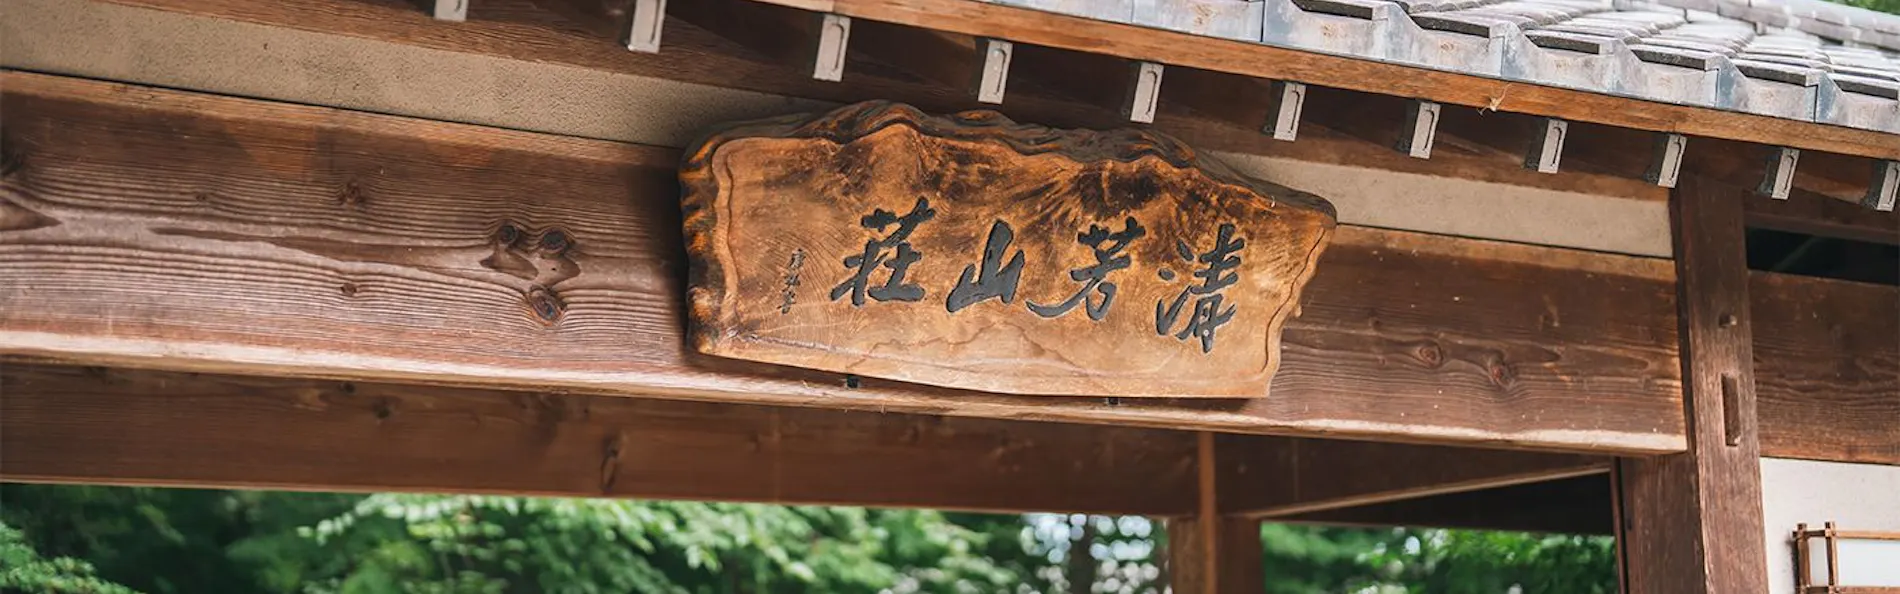 清芳山荘